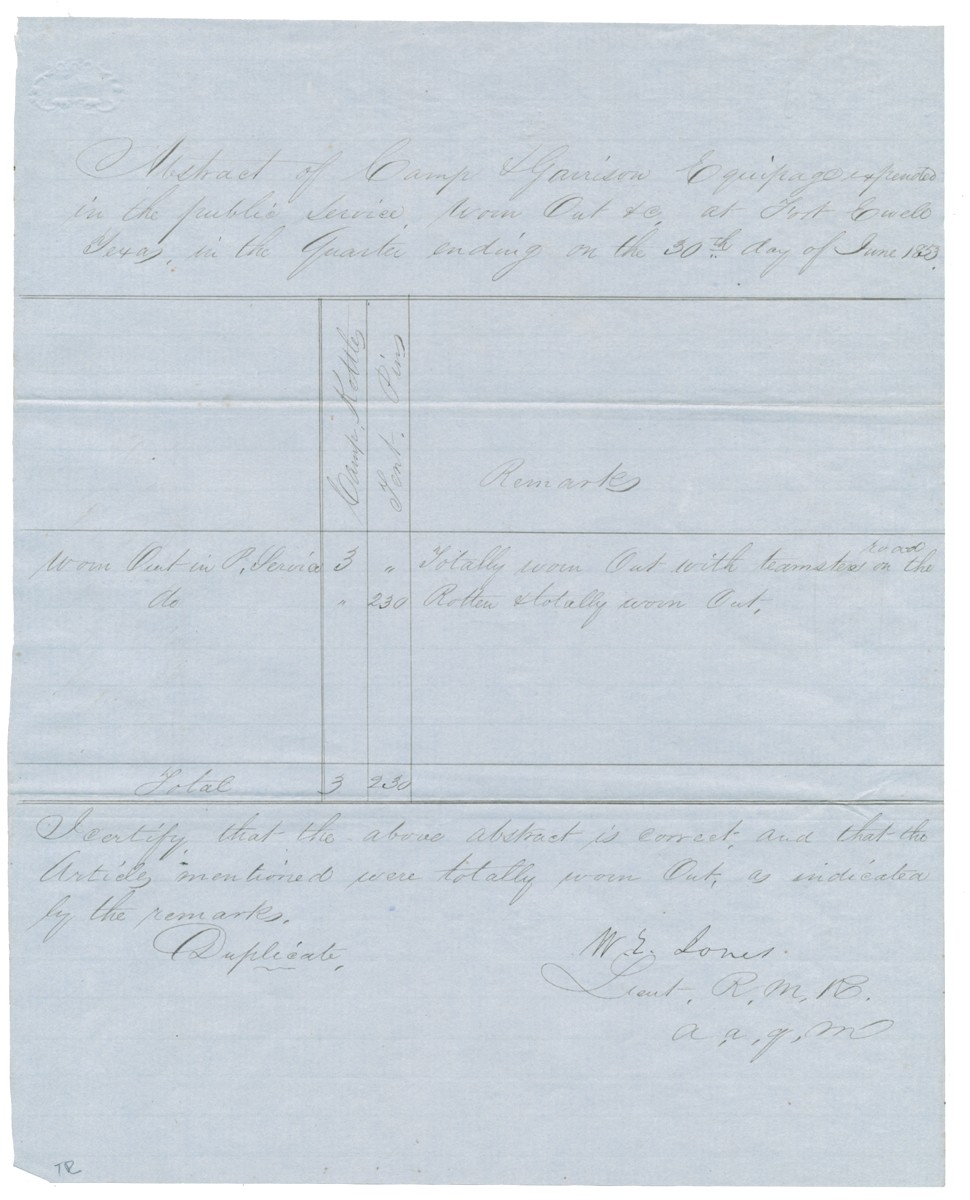 Abstract of Camp & Garrison Equipage expended
in the public service, worn Out &c. at Fort Ewell
Texas, in the Quarter ending on the 30th day of June 1853.
Camp Kettles
Tent Pins
Remarks
Worn Out in P. Service 3 " Totally worn Out with teamsters on the road
do " 230 Rotten & totally worn Out.
Total 3 230
I certify that the above abstract is correct, and that the
Articles mentioned were totally worn Out, as indicated
by the remarks.
Duplicate.
W. E. Jones.
Lieut. R. M. R.
a. a. q. m
TR